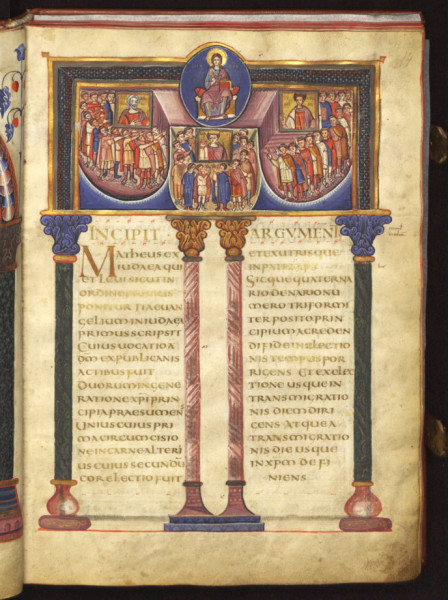 INCIPIT
Matheus ex
iudaea qui
et Levi sicut in
ordine primus
ponitur ita evan
gelium in iudaea
primus scripsit
Cuius vocatio a
dm ex publicanis
actibus fuit
duorum in gene
ratione xpi prin
cipia praesumens
Unius cuius pri
ma circumcisio
ne in carne alteri
us cuius secundu
cor electio fuit
ARGVMENT
et ex utrisque
in patribus
Sicque quaterna
rio denario nu
mero triformi
ter posito prin
cipium a creden
di fide in electio
nis tempus por
rigens Et ex elec
tione usque in
transmigratio
nis diem diri
gens atque a
transmigratio
nis die usque
in xpm defi
niens